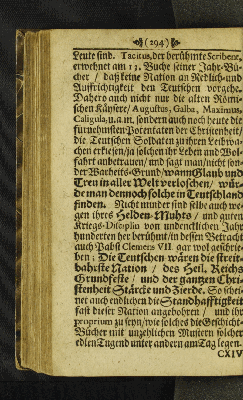 (294)
Leute sind. Tacitus, der berühmte Scribente,
erwehnet am 13. Buche seiner Jahr-Bü-
cher / daß keine Nation an Redlich-und
Auffrichtigkeit den Teutschen vorgehe.
Dahero auch nicht nur die alten Römi-
schen Käysere/ Augustus, Galba, Maximus,
Caligula, u.a.m. sondern auch noch heute die
fürnehmsten Potentaten der Christenheit/
die Teutschen Soldaten zu ihren Leibwa-
chen erkiesen/ ja solchen ihr Leben und Wol-
fahrt anbetrauen/ und sagt man/nicht son-
der Warheits-Grund/ wann Glaub und
Treu in aller Welt verloschen/ wür-
de man dennoch solche in Teutschland
finden. Nicht minder sind selbe auch we-
gen ihres Helden-Muhts / und guten
Kriegs-Disciplin von undencklichen Jahr
hunderten her berühmt/ in dessen Betracht
auch Pabst Clemens VII. gar wol geschrie-
ben: Die Teutschen wären die streit-
bahrste Nation / des Heil. Reichs
Grundfeste / und der gantzen Chri-
stenheit Stärcke und Zierde. So schei-
net auch endlichen die Standhafftigkeit
fast dieser Nation angebohren / und ihr
proprium zu seyn/wie solches die Geschicht-
Bücher mit unzehlichen Mustern solcher
edlen Tugend unter andern am Tag legen.
CXIV